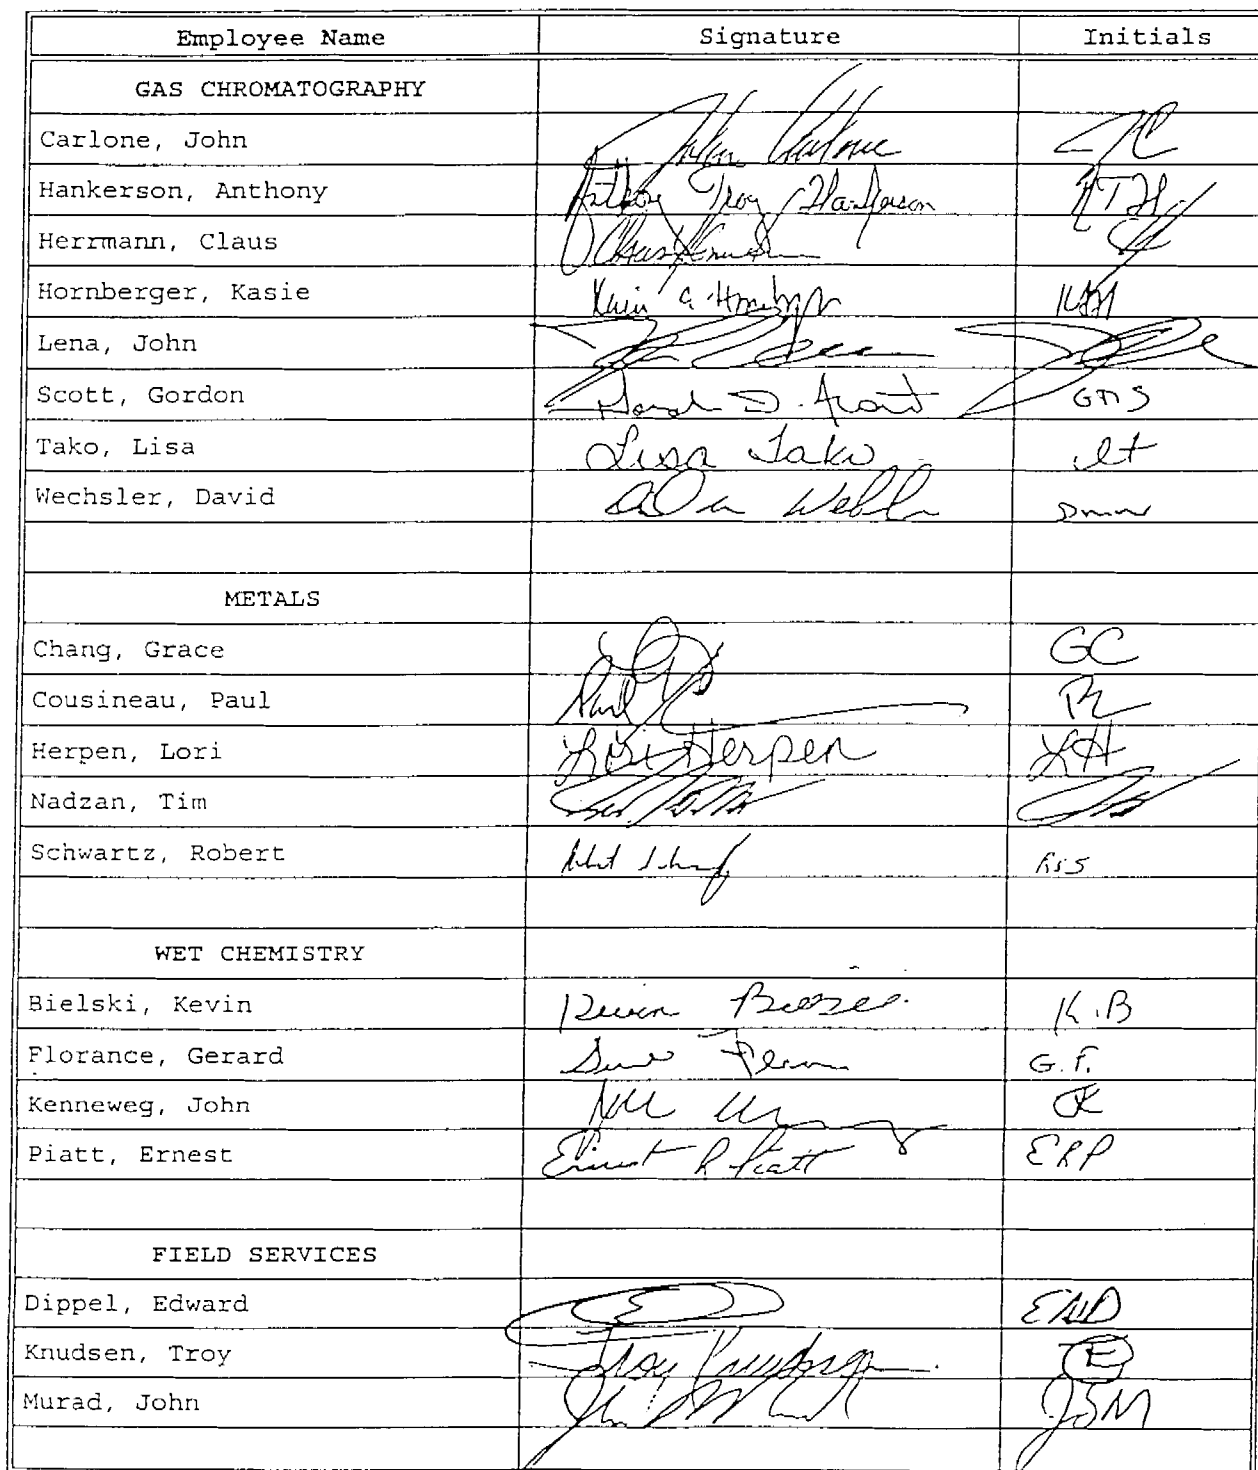 Employee Name Signature Initials
GAS CHROMATOGRAPHY
Carlone, John John Carlone JC
Hankerson, Anthony Anthony Troy Hankerson ATH
Herrmann, Claus Claus Herrmann
Hornberger, Kasie KAH
Lena, John
Scott, Gordon Gordon D. Scott GDS
Tako, Lisa Lisa Tako lt
Wechsler, David
METALS
Chang, Grace GC
Cousineau, Paul Paul PC
Herpen, Lori Lori Herpen LH
Nadzan, Tim
Schwartz, Robert RSS
WET CHEMISTRY
Bielski, Kevin Kevin K.B
Florance, Gerard G.F.
Kenneweg, John JK
Piatt, Ernest Ernest R Piatt ERP
FIELD SERVICES
Dippel, Edward E END
Knudsen, Troy Troy Knudsen
Murad, John John JSM